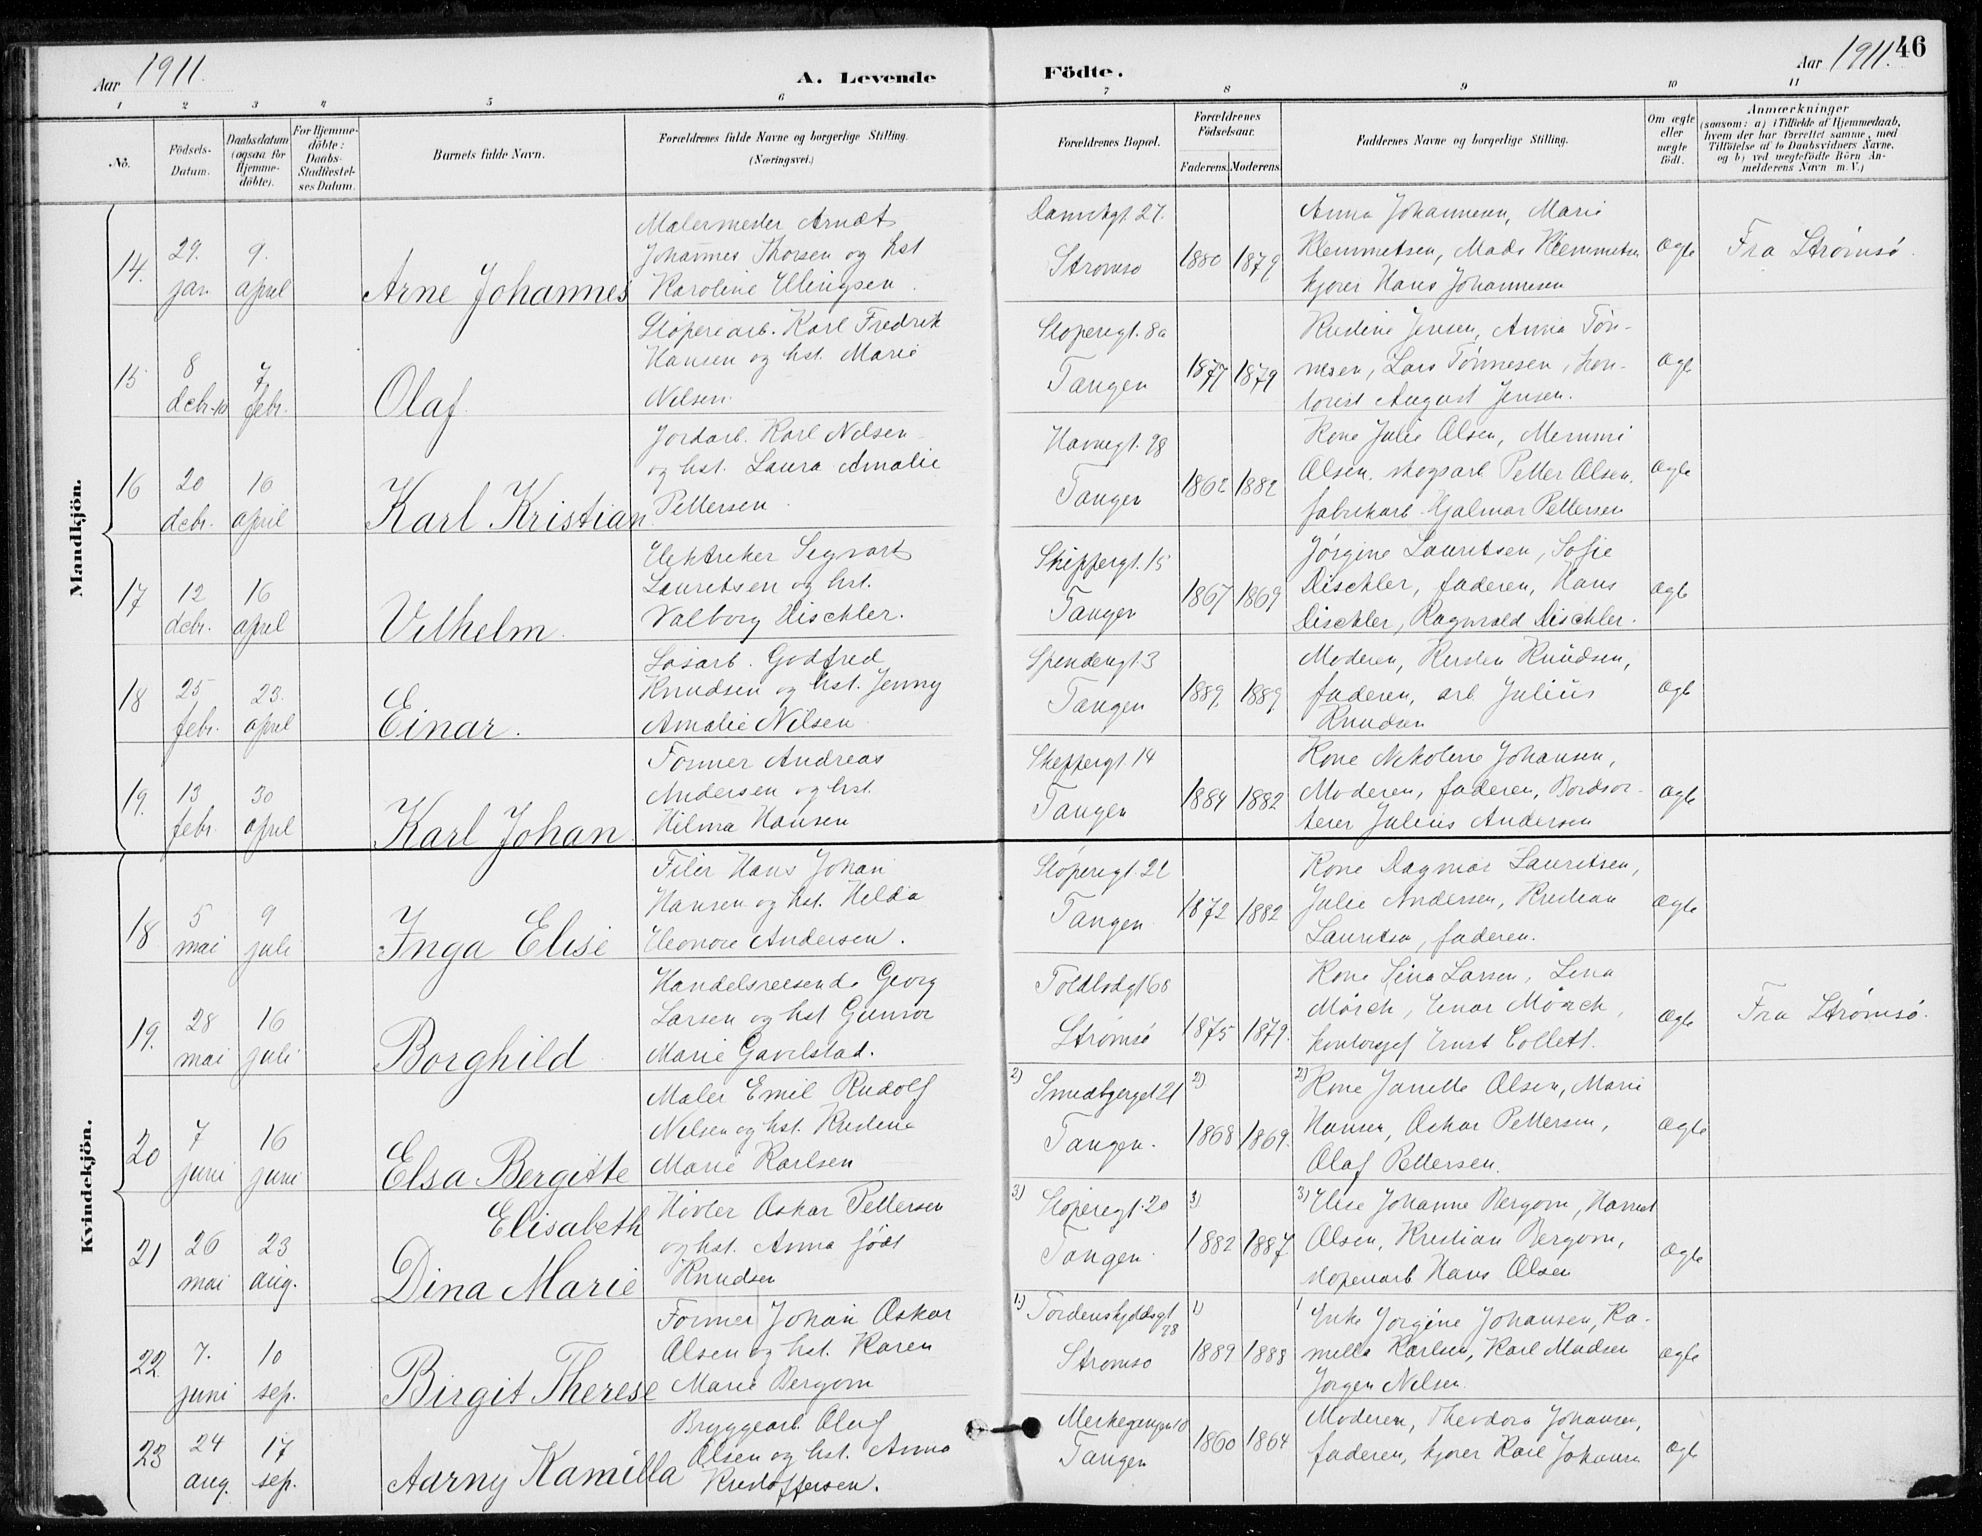 Aar 1911.
A. Levende
Födte.
Aar 1911.
46
1 2 3 4 5 6 7 8 9 10 11
No.
Födsels-
Datum.
Daabsdatum
(ogsaa for
Hjemme-
döbte).
For Hjemme-
döbte:
Daabs-
Stadfæstel-
ses Datum.
Barnets fulde Navn.
Forældrenes fulde Navne og borgerlige Stilling.
(Næringsvei.)
Forældrenes Bopæl.
Forældrenes
Födselsaar.
Faderens.
Moderens.
Faddernes Navne og borgerlige Stilling.
Om ægte
eller
uægte
födt.
Anmærkninger
(saasom: a) i Tilfælde af Hjemmedaab,
hvem der har forrettet samme, med
Tilföielse af to Daabsvidners Navne,
og b) ved uægtefödte Börn An-
melderens Navn m. V.)
Mandkjön.
14.
29.
jan
9.
april
Arne Johannes
Malermester Arndt
Johannes Thorsen og hst
Karoline Ellingsen.
Danskgt 27.
Strømsø
1880
1879
Anna Johannesen, Marie
Klemmetsen, Mads Klemmetsen
kjører Hans Johannesen
Ægte
Fra Strømsø.
15
8
debr. 10
7
febr.
Olaf
Støperiarb. Karl Fredrik
Hansen og hst. Marie
Nilsen.
Støperigt. 8a
Tangen
1877
1879
Kristine Jensen, Anna Tøn-
nesen, Lars Tønnesen, kon-
torist August Jensen.
Ægte
16
20
debr.
16
april
Karl Kristian
Jordarb. Karl Nilsen
og hst. Laura Amalie
Pettersen.
Havnegt. 98
Tangen
1862
1882
Kone Julie Olsen, Memmi
Olsen, skogsarb Petter Olsen,
fabrikarb. Hjalmar Pettersen
Ægte
17
12
debr.
16
april
Vilhelm
Elektriker Sigvart
Lauritsen og hst.
Valborg Dischler.
Skippergt. 15
Tangen
1867
1869
Jørgine Lauritsen, Sofie
Dischler, faderen, Hans
Dischler, Ragnvald Dischler.
Ægte
18
25
febr.
23.
april
Einar.
Løsarb. Godfred
Knudsen og hst. Jenny
Amalie Nilsen
Tangen
1889
1889
Moderen, Kirsten Knudsen,
faderen, arb Julius
Knudsen
Ægte
19.
13
febr.
30
april
Karl Johan
Former Andreas
Andersen og hst.
Hilma Hansen
Skippergt 14
Tangen
1884
1882
Kone Nikoline Johansen,
Moderen, faderen, Bordsor-
terer Julius Andersen
Ægte
Kvindekjön.
18
5
mai
9
juli
Inga Elise
Filer Hans Johan
Hansen og hst. Hilda
Eleonore Andersen.
Støperigt. 21
Tangen
1872
1882
Kone Dagmar Lauritsen,
Julie Andersen, Kristian
Lauritsen, faderen.
Ægte
19.
28
mai
16
juli
Borghild
Handelsreisende Georg
Larsen og hst Gunvor
Marie Gavelstad.
Toldbodgt 68
Strømsø
1875
1879.
Kone Sina Larsen, Lina
Mørch, Einar Mørch,
kontorsjef Ernst Collett.
Ægte
Fra Strømsø.
20
7
juni
16
juni
Elsa Bergitte
Elisabeth
Maler Emil Rudolf
Nilsen og hst. Kristina
Marie Karlsen
2) Smedbjerget 21
Tangen.
2)
1868
1869.
2) Kone Janette Olsen, Marie
Hansen, Oskar Pettersen,
Olaf Pettersen.
Ægte
21
26
mai
23
aug.
Dina Marie
Høvler Oskar Pettersen
og hst. Anna født
Knudsen
3) Støperigt. 20
Tangen.
3)
1882
1887
3) Elise Johanne Bergom, Harriet
Olsen, Kristian Bergom,
støperiarb Hans Olsen
Ægte
22
7.
juni
10
sep.
Birgit Therese
Former Johan Oskar
Olsen og hst. Karen
Marie Bergom
1) Tordenskjoldsgt
28
Strømsø
1)
1889
1888
1 Enke Jørgine Johansen, Ka-
milla Karlsen, Karl Madsen
Jørgen Nilsen
Ægte
23
24
aug.
17
sep.
Aarny Kamilla
Bryggearb. Oluf
Olsen og hst. Anna
Kristoffersen.
Tangen
1860
1864
Moderen, Theodora Johansen,
faderen, kjører Karl Johansen
Ægte